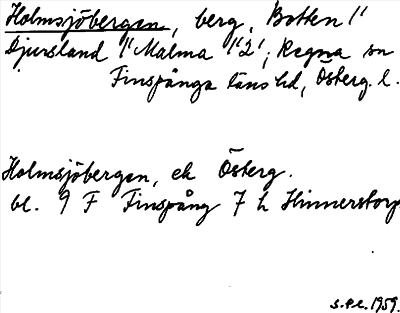 Holmsjöbergen, berg, Botten 1'
Djursland 1' Malma 1'2', Regna sn
Finspånga läns hd, Österg. l.
Holmsjöbergen, ek Österg.
bl. 9 F Finspång 7 h Hinnerstorp
s.å.e. 1959.